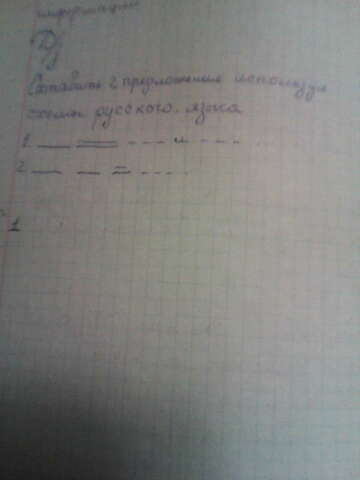 информации
Д/з
Составить 2 предложения используя
схемы русского. языка
1 ___ ═══ --- и --- ...
2. ___ ___ ═ ----
1